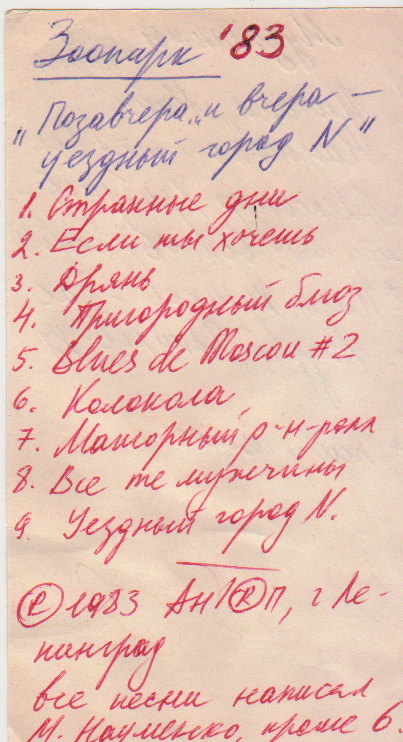 Зоопарк '83
„Позавчера „и вчера —
уездный город N"
1. Странные дни
2. Если ты хочешь
3. Дрянь
4. Пригородный блюз
5. Blues de Moscou #2
6. Колокола
7. Мажорный р-н-ролл
8. Все те мужчины
9. Уездный город N.
Ⓟ 1983 АнТ®оП, г Ле-
нинград
все песни написал
М. Науменко, кроме 6.